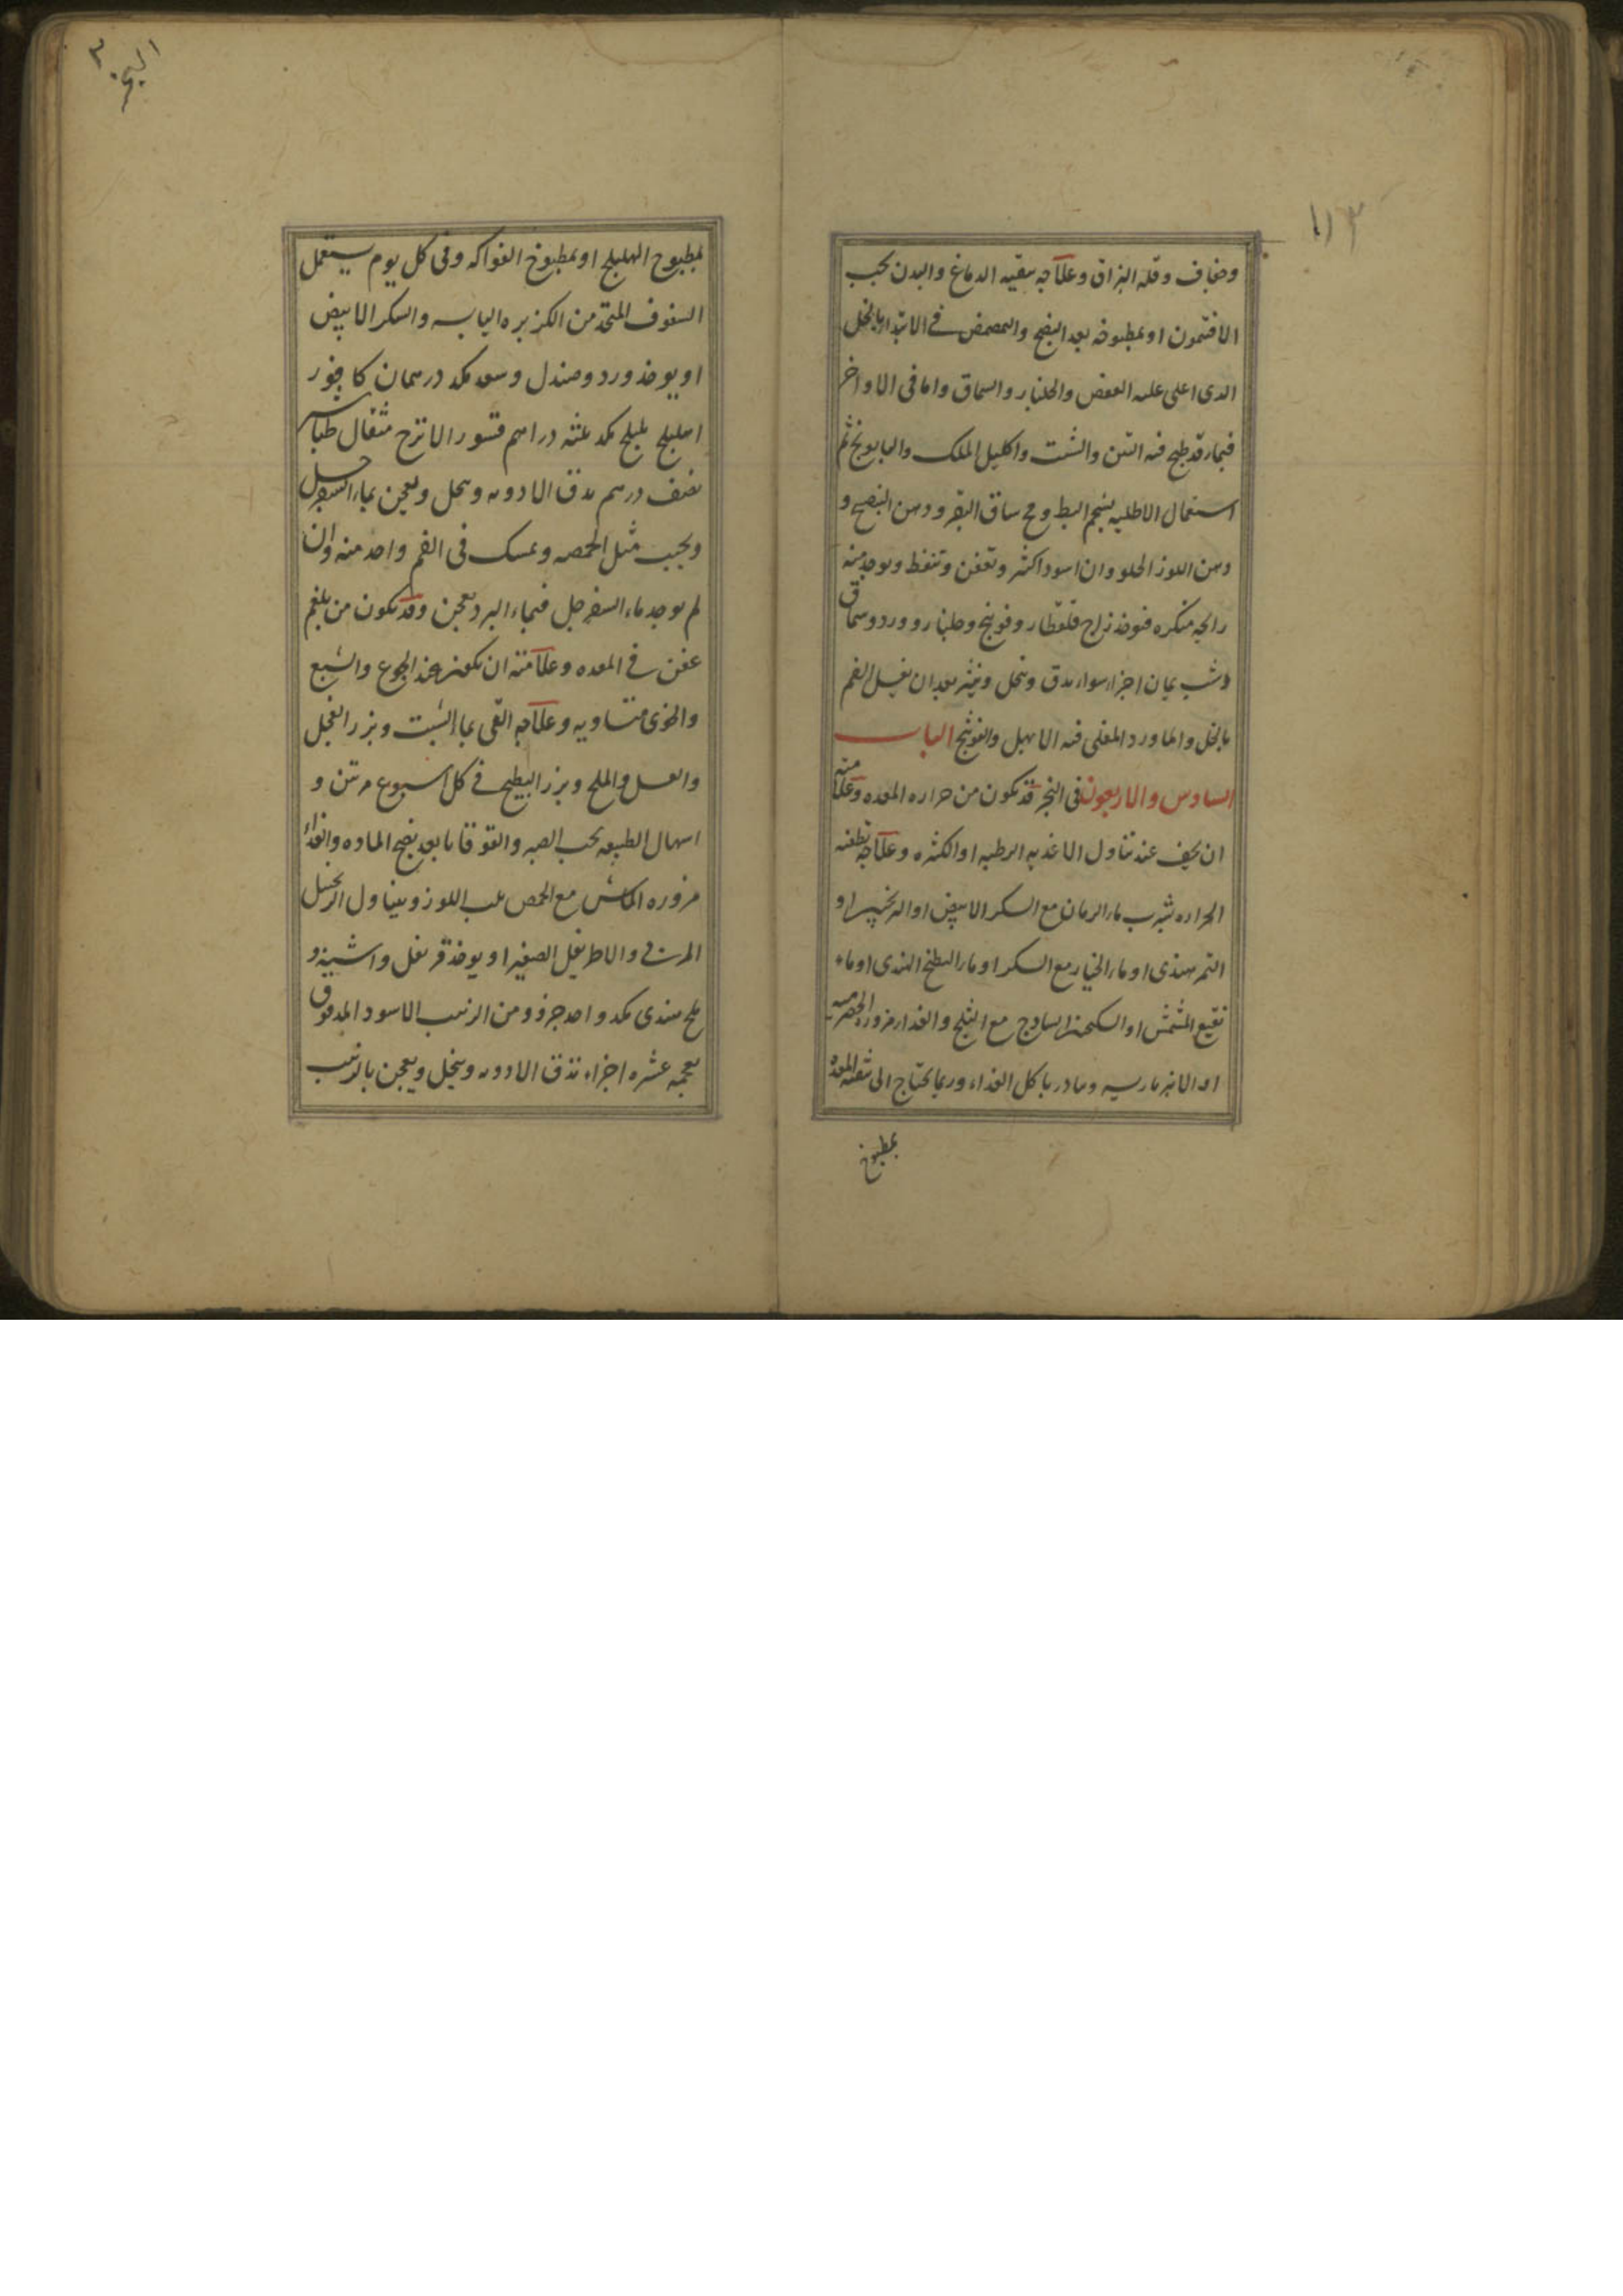 ١١٣
وجفاف وقله البزاق وعلاجه بنقيه الدماغ والبدن بحب
الافتمون او بمطبوخه بعد النضج والتمضمض فى الابتداء بالخل
الذى اغلى عليه العفص والجلنار والسماق واما فى الاواخر
فبماء قد طبخ فيه التين والشبت واكليل الملك والبابونج ثم
استعمال الاطليه بشحم البط ومخ ساق البقر ودهن البنفسج و
دهن اللوز الحلو وان اسود اكثر وتعفن وتنفط ويوجد منه
رايحه منكره فيوخذ زاج قلقطار وفوتنج وجلنار وورد وسماق
وشب يمان اجزاء سواء يدق وينخل وينثر بعد ان يغسل الفم
بالخل والماورد المغلى فيه الابهل والفوتنج الباب
السادس والاربعون فى البخر قد يكون من حراره المعده وعلامته
ان يخف عند تناول الاغذيه الرطبه او الكثيره وعلاجه تطفئه
الحراره بشرب ماء الرمان مع السكر الابيض او الترنجبين او
التمر هندى او ماء الخيار مع السكر او ماء البطيخ الهندى او ماء
نقيع المشمش او السكنجبين الساذج مع الثلج والغذاء مزوره الحصرميه
او الانبرباريسيه ويبادر باكل الغذاء وربما يحتاج الى تنقيه المعده
بمطبوخ
البخر
بمطبوخ الهليلج او بمطبوخ الفواكه وفى كل يوم يستعمل
السفوف المتخذ من الكزبره اليابسه والسكر الابيض
او يوخذ ورد وصندل وسعد مكد درهمان كافور
اهليلج بليلج مكد ثلثه دراهم قشور الاترج مثقال طباشير
نصف درهم يدق الادويه وينخل ويعجن بماء السفرجل
ويحبب مثل الحمصه ويمسك فى الفم واحد منه وان
لم يوجد ماء السفرجل فبماء الورد يعجن وقد يكون من بلغم
عفن فى المعده وعلامته ان يكون عند الجوع والشبع
والخوى متساويه وعلاجه القى بماء الشبت وبزر الفجل
والعسل والملح وبزر البطيخ فى كل اسبوع مرتين و
اسهال الطبيعه بحب الصبر والقوقايا بعد نضج الماده والغذاء
مزوره الماش مع الحمص بلب اللوز ويتناول الزنجبيل
المربى والاطريفل الصغير او يوخذ قرنفل واشنه و
ملح هندى مكد واحد جزو ومن الزبيب الاسود المدقوق
بعجمه عشره اجزاء تدق الادويه وينخل ويعجن بالزبيب